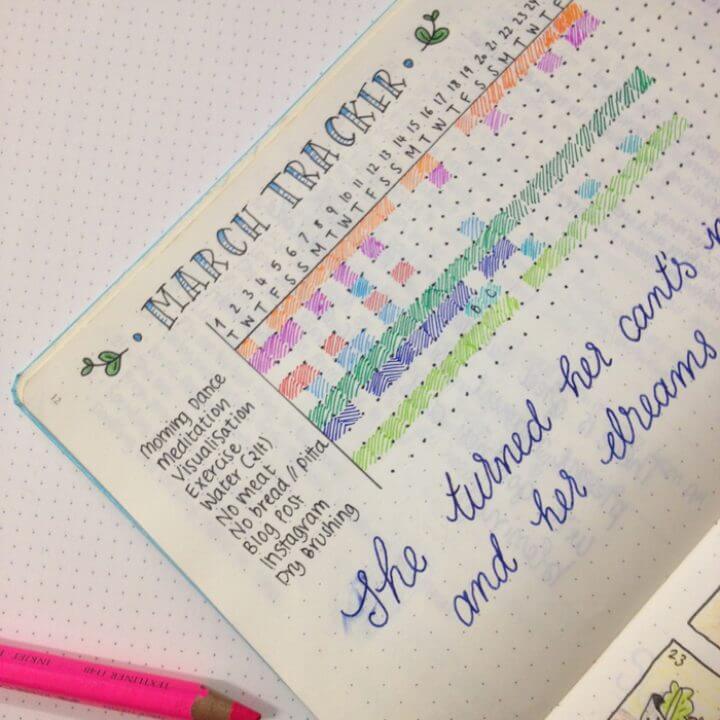 MARCH TRACKER
1 2 3 4 5 6 7 8 9 10 11 12 13 14 15 16 17 18 19 20 21 22 23 24
T W T F S S M T W T F S S M T W T F S S M T W T F
Morning Dance
Meditation
Visualisation
Exercise
Water (2lt)
No meat
No bread // Pitta
Blog Post
Instagram
Dry Brushing
12
She turned her cant's
and her dreams
TEXTLINER 1148
INKJET
23